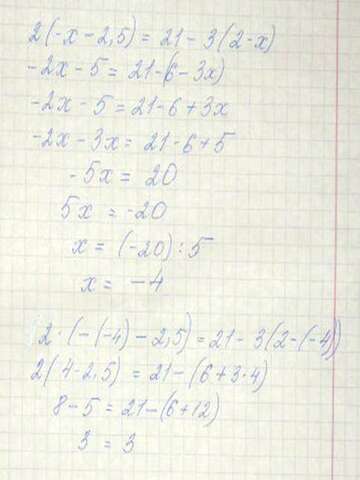 2(-x-2,5) = 21-3(2-x)
-2x-5 = 21-(6-3x)
-2x-5 = 21-6+3x
-2x-3x = 21-6+5
-5x = 20
5x = -20
x = (-20):5
x = -4
2·(-(-4)-2,5) = 21-3(2-(-4))
2(4-2,5) = 21-(6+3·4)
8-5 = 21-(6+12)
3 = 3